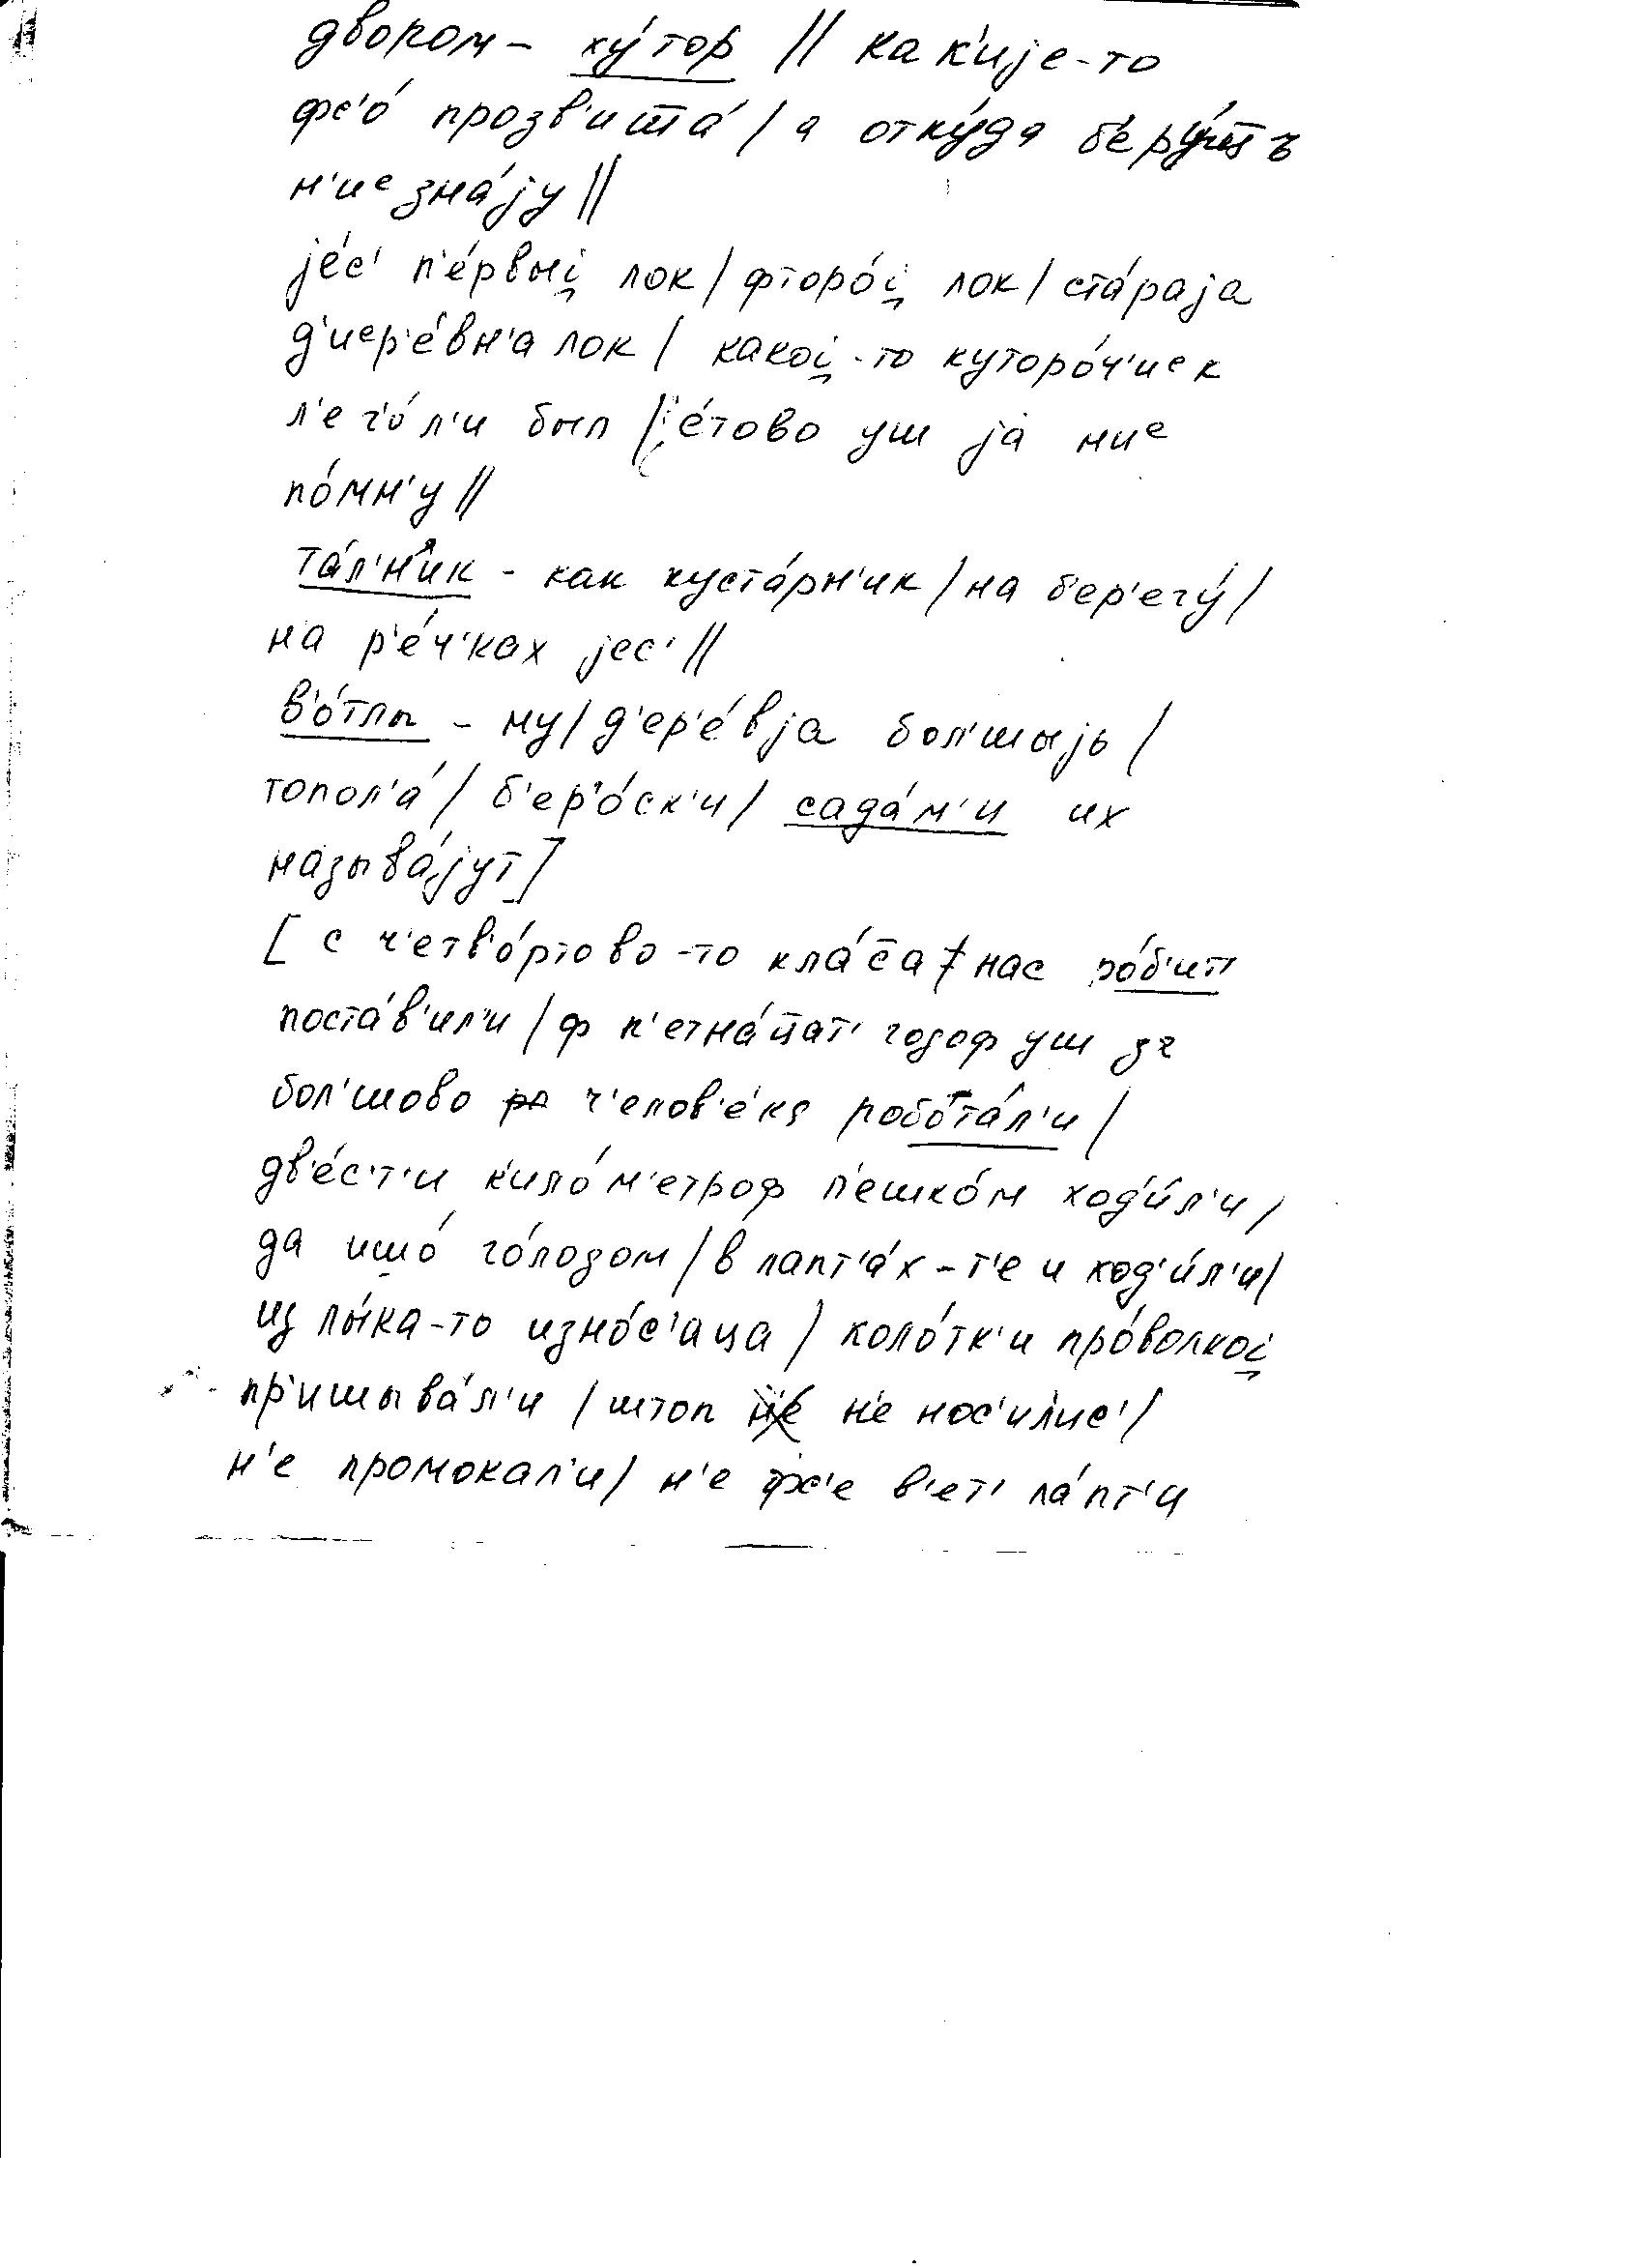 двором – ху́тор || как'ијe-то
фс'о́ прозв'иш̄а́ / а отку́да б'еру́т
н'иᵉ зна́ју ||
је́с' п'е́рвыi̯ лок / фторо́i̯ лок / ста́раја
д'иᵉр'е́вн'а лок / какоi̯-то куторо́ч'иᵉк
л'е ч'о́ л'и был / е́тово уш ја ниᵉ
по́мн'у ||
та́л'н'ик – как куста́рн'ик / на б'ер'егу́ /
на р'е́ч'ках јес' ||
в'о́тлы – ну / д'ер'е́вја бол'шыјь /
топол'а́ / б'ер'о́ск'и / сада́м'и их
называ́јут]
[ с ч'етв'о́ртово-то кла́с̄а / нас ро́б'ит'
поста́в'ил'и / ф п'етна́ц̄ат' годоф уш за
бол'шово ч'елов'е́ка робо́та́л'и /
дв'е́с'т'и к'ило́м'етроф п'ешко́м ход'и́л'и /
да ишо́ го́лодом / в лапт'а́х-т'е и ход'и́л'и /
из лы́ка-то изно́с'аца / коло́тк'и про́волкоi̯
пр'ишыва́л'и / штоп н'е нос'ил'ис' /
н'е промокал'и / н'е фс'е в'ет' ла́пт'и